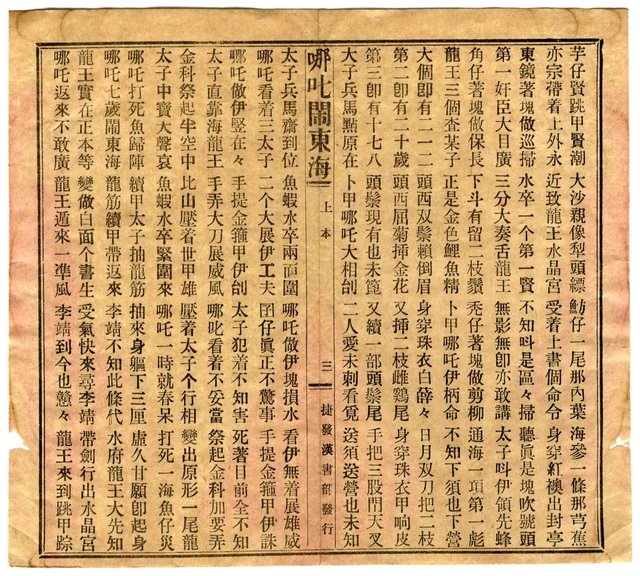 芋仔賢跳甲賢潮 大沙親像犁頭鏢 魴仔一尾那內葉 海參一條那芎蕉
亦宗帶着上外永 近致龍王水晶宮 受着上書個命令 身穿紅襖出封亭
東鏡著塊做巡掃 水卒一個第一賢 不知呌是區々掃 聽眞是塊吹號頭
第一奸臣大目廣 三分大奏舌龍王 無影無卽亦敢講 太子呌伊領先蜂
角仔著塊做保長 下斗有留二枝鬚 禿仔著塊做剪柳 通海一項第一彪
龍王三個查某子 正是金色鯉魚精 卜甲哪吒伊柄命 不知下須也下營
大個卽有二一二 頭西双鬃賴倒眉 身穿珠衣白薛々 日月双刀把二枝
第二卽有二十歲 頭西屈菊挿金花 又挿二枝雌鷄尾 身穿珠衣甲响皮
第三卽有十七八 頭鬃現有也未笓 又續一部頭鬃尾 手把三股門天叉
大子兵馬點原在 卜甲哪吒大相刣 二人愛未刺看覓 送須送營也未知
哪吒鬧東海 上本 三 捷發漢書部發行
太子兵馬齋到位 魚蝦水卒兩面圍 哪吒做伊塊損水 看伊無着展雄威
哪吒看着三太子 二个大展伊工夫 囝仔眞正不驚事 手提金箍甲伊誅
哪吒做伊竪在々 手提金箍甲伊刣 太子犯着不知害 死著目前全不知
太子直靠海龍王 手弄大刀展威風 哪吒看着不妥當 祭起金科加要弄
金科祭起半空中 比山壓着世甲雄 壓着太子个行相 變出原形一尾龍
太子中寶大聲哀 魚蝦水卒緊圍來 哪吒一時就春呆 打死一海魚仔災
哪吒打死魚歸陣 續甲太子抽龍筋 抽來身軀下三厘 盧久甘願卽起身
哪吒七歲鬧東海 龍筋續甲帶返來 李靖不知此條代 水府龍王大先知
龍王實在正本等 變做白面个書生 受氣快來尋李靖 帶劍行出水晶宮
哪吒返來不敢廣 龍王遁來一準風 李靖到今也戇々 龍王來到跳甲踪